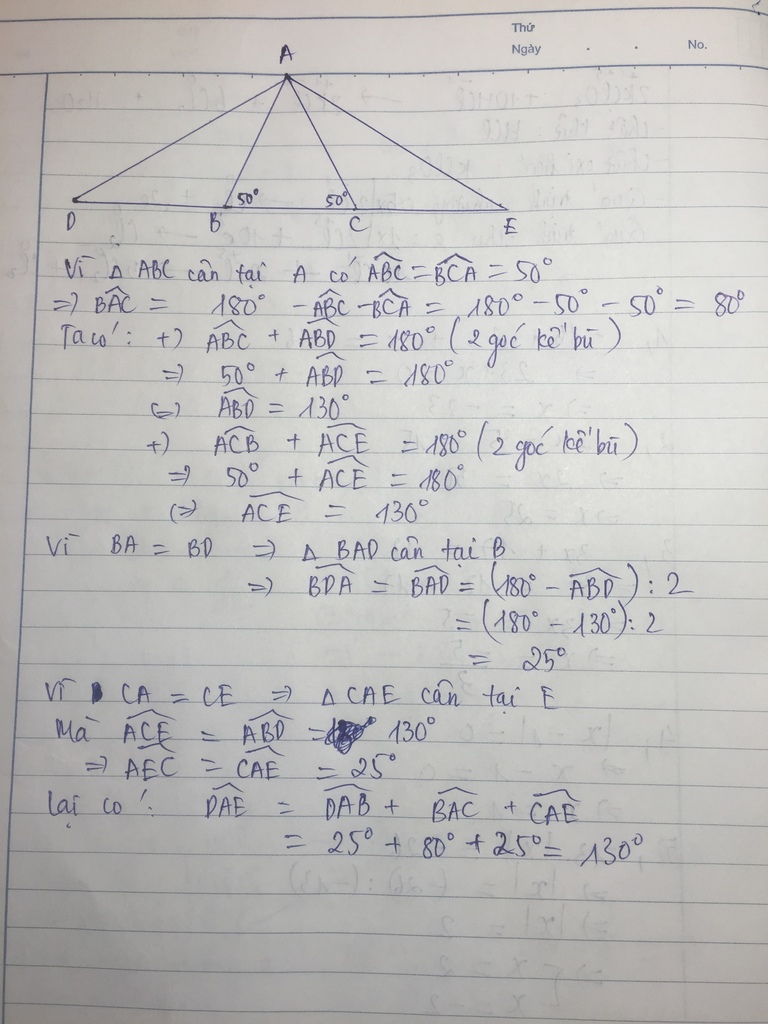 Thứ
Ngày . . No.
A
50° 50°
D B C E
Vì Δ ABC cân tại A có ABC = BCA = 50°
=) BAC = 180° - ABC - BCA = 180° - 50° - 50° = 80°
Ta có: +) ABC + ABD = 180° (2 góc kề bù)
=) 50° + ABD = 180°
(=) ABD = 130°
+) ACB + ACE = 180° (2 góc kề bù)
=) 50° + ACE = 180°
(=) ACE = 130°
Vì BA = BD =) Δ BAD cân tại B
=) BDA = BAD = (180° - ABD) : 2
= (180° - 130°) : 2
= 25°
Vì CA = CE =) Δ CAE cân tại E
Mà ACE = ABD = 130°
=) AEC = CAE = 25°
Lại có: DAE = DAB + BAC + CAE
= 25° + 80° + 25° = 130°